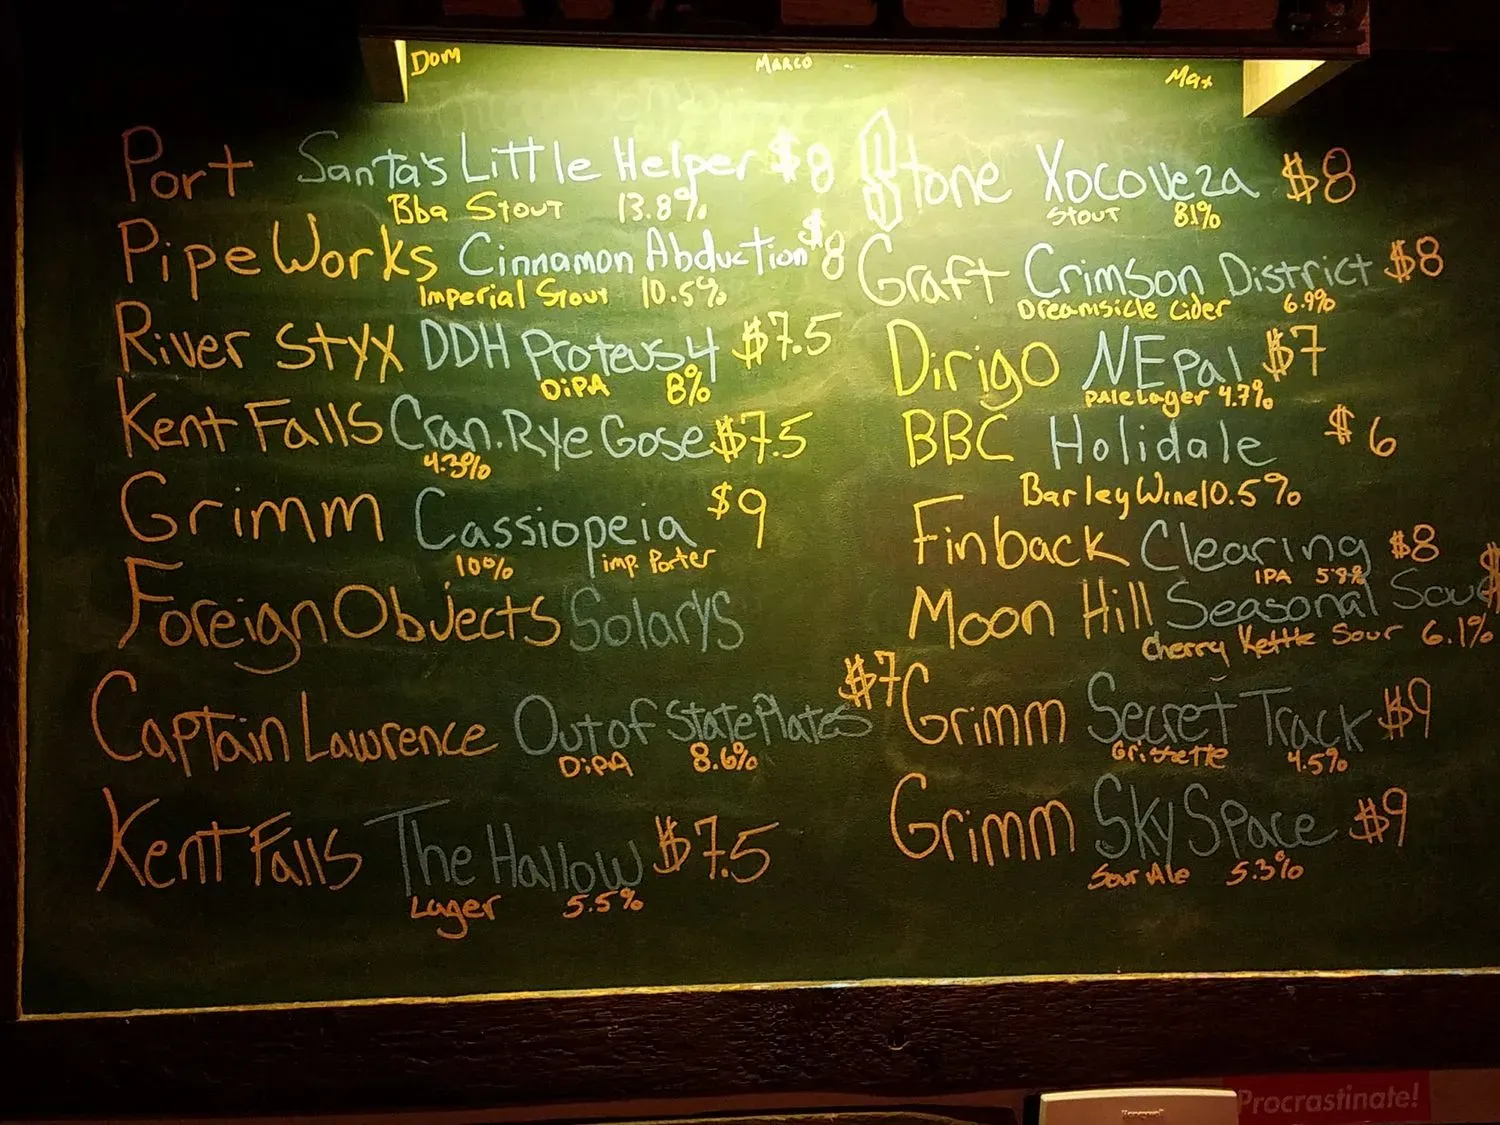 Dom
Marco
Max
Port Santa's Little Helper $8
Bba Stout 13.8%
PipeWorks Cinnamon Abduction $8
Imperial Stout 10.5%
River Styx DDH Proteus 4 $7.5
DiPA 8%
Kent Falls Cran. Rye Gose $7.5
4.3%
Grimm Cassiopeia $9
10% imp. Porter
Foreign Objects Solarys
Captain Lawrence Out of State Plates $7
DiPA 8.6%
Kent Falls The Hallow $7.5
Lager 5.5%
Stone Xocoveza $8
Stout 8.1%
Graft Crimson District $8
Dreamsicle Cider 6.9%
Dirigo NEPal $7
pale Lager 4.7%
BBC Holidale $6
Barley Wine 10.5%
Finback Clearing $8
IPA
Moon Hill Seasonal Sour $
Cherry Kettle Sour 6.1%
Grimm Secret Track $9
Grisette 4.5%
Grimm Sky Space $9
Sour Ale 5.3%
Procrastinate!